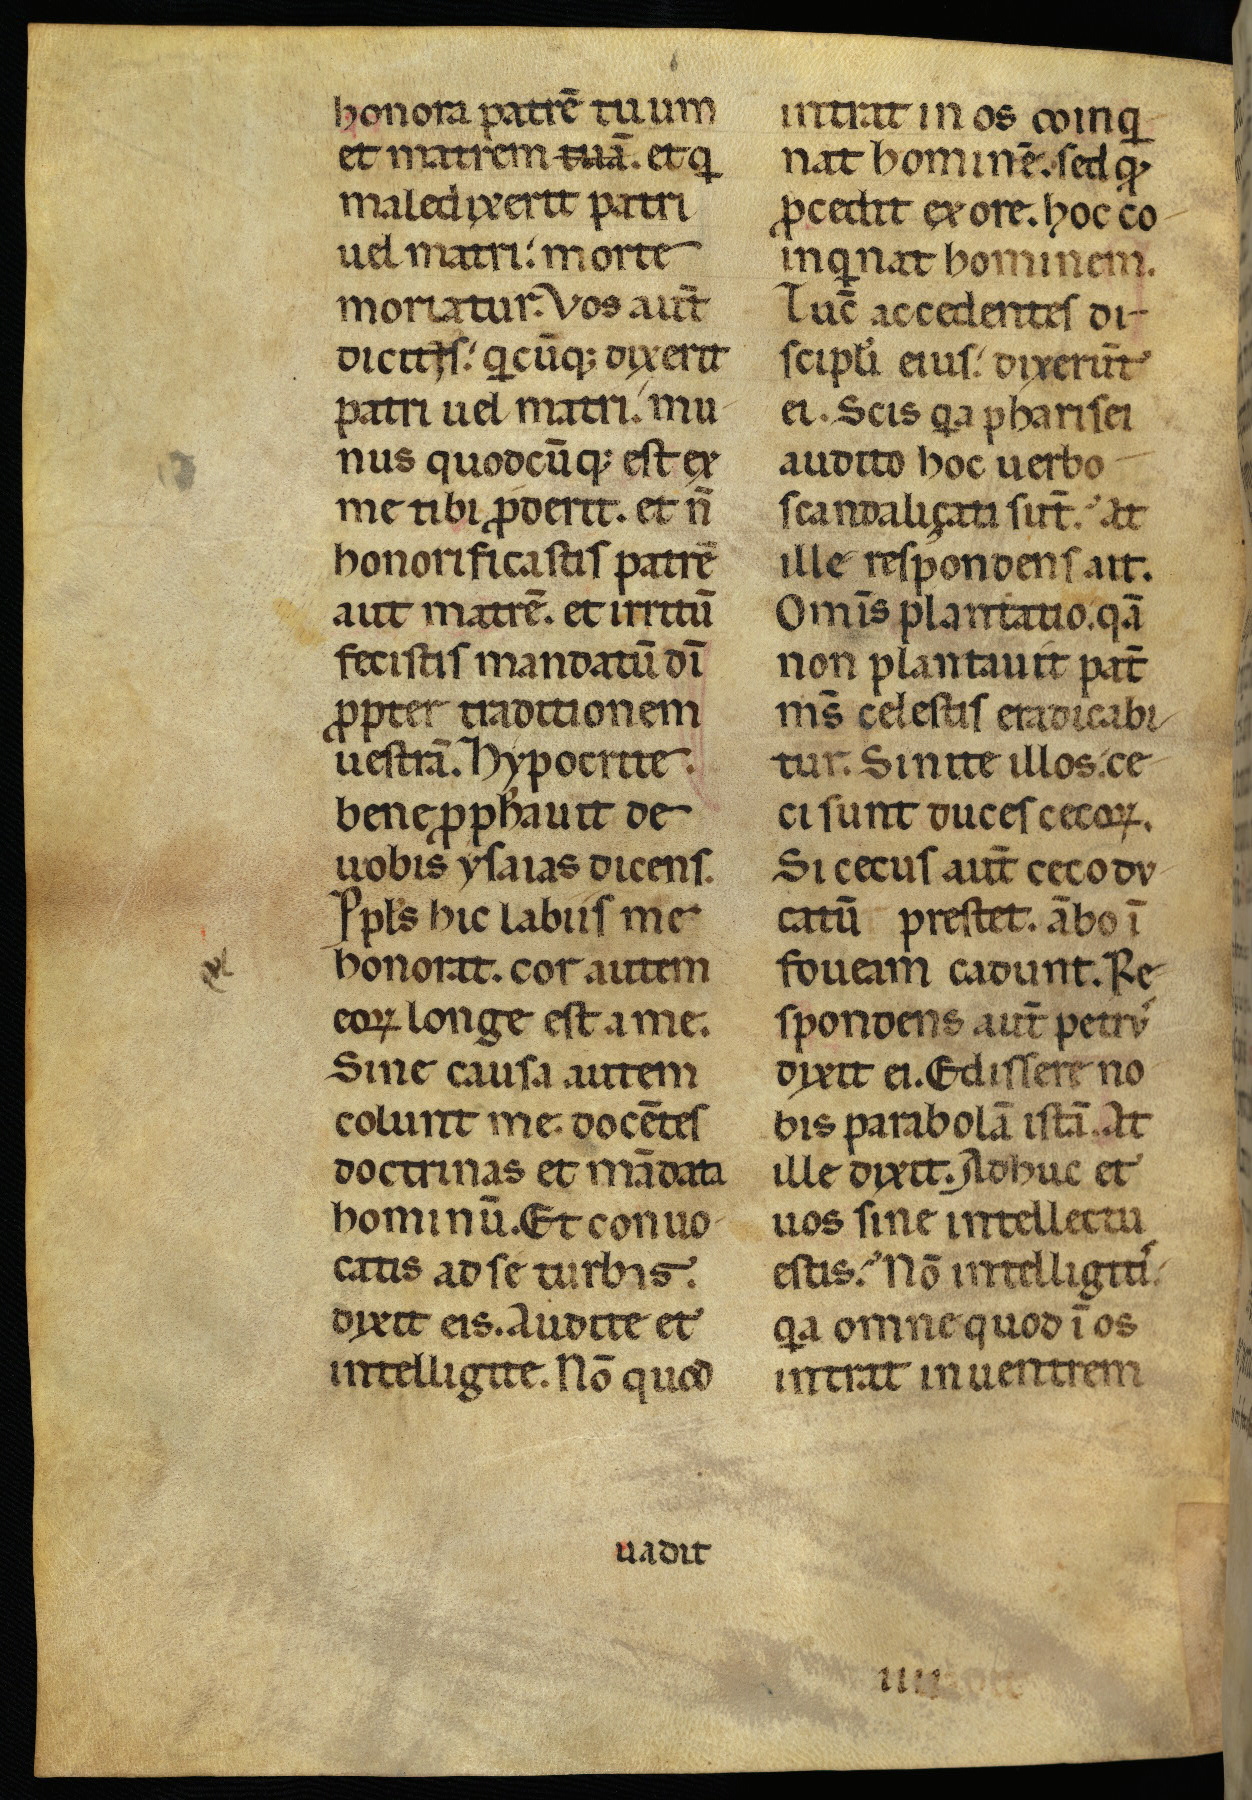 honora patrē tuum
et matrem tuā. et q̄
maledixerit patri
uel matri: morte
moriatur. Vos aut̄
dicitis: q̄cūq; dixerit
patri uel matri: mu
nus quodcūq; est ex
me tibi ꝓderit. et n̄
honorificastis patrē
aut matrē. et irritū
fecistis mandatū dī
ꝓpter traditionem
uestrā. Hypocrite.
bene ꝓph̄auit de
uobis ysaias dicens.
Ppl̄s hic labiis me
honorat. cor autem
eoꝝ longe est a me.
Sine causa autem
colunt me. docētes
doctrinas et mādata
hominū. Et conuo
catis ad se turbis.
dixit eis. Audite et
intelligite. Nō quod
intrat in os coinq
nat hominē. sed qᷓ
ꝓcedit ex ore. hoc co
inqnat hominem.
Tuc̄ accedentes di-
scipl̄i eius: dixerūt
ei. Scis qa pharisei
audito hoc uerbo
scandaliçati sūt. At
ille respondens ait.
Omīs plantatio. qā
non plantauit pat̄
ms̄ celestis eradicabi
tur. Sinite illos: ce
ci sunt duces cecoꝝ.
Si cecus aut̄ ceco du
catū prestet. ābo ī
foueam cadunt. Re
spondens aut̄ petrus
dixit ei. Edissere no
bis parabolā istā. At
ille dixit. Adhuc et
uos sine intellectu
estis. Nō intelligitis
qa omne quod ī os
intrat in uentrem
uadit
iiij